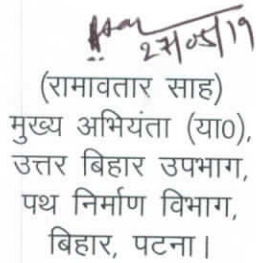 27/05/19
(रामावतार साह)
मुख्य अभियंता (या0),
उत्तर बिहार उपभाग,
पथ निर्माण विभाग,
बिहार, पटना।